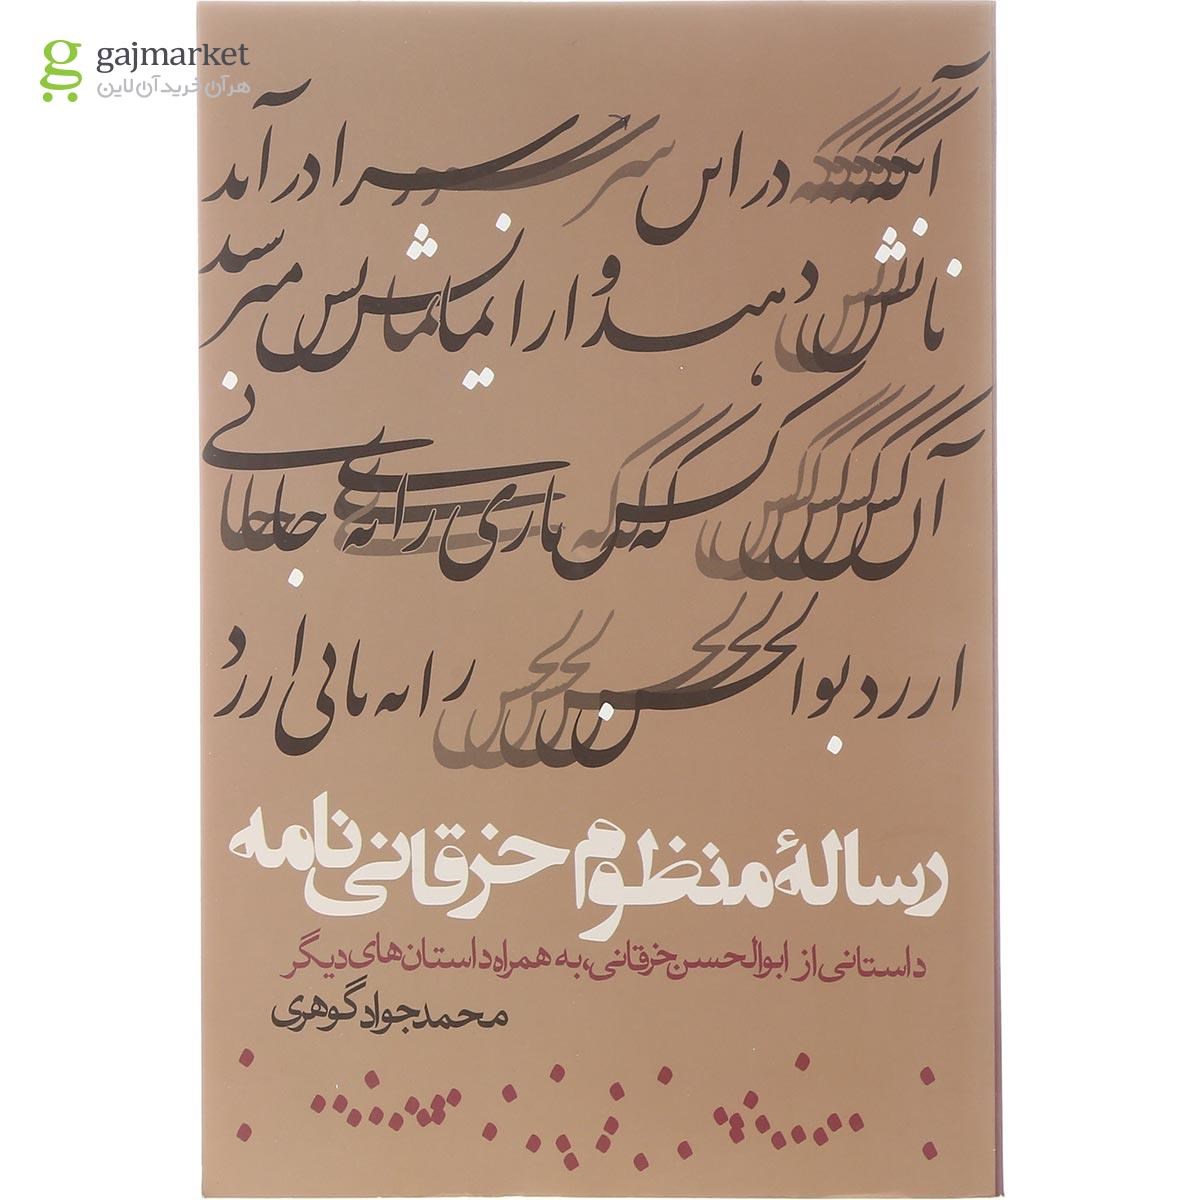 gajmarket
هر آن خرید آن لاین
آنکه در این سرا درآید
نانش دهید و از ایمانش مپرسید
آن کس که
جانی
ارزد بوالحسن را به نانی ارزد
رسالهٔ منظوم خرقانی نامه
داستانی از ابوالحسن خرقانی، به همراه داستان‌های دیگر
محمدجواد گوهری